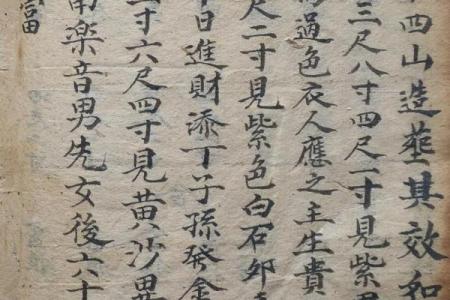 西山造塟其效如
三尺八寸四尺一寸見紫
過色衣人應之主生貴
尺二寸見紫色白石卯
日進財添丁子孫發金
寸六尺四寸見黄沙異
楽音男先女後六十
富